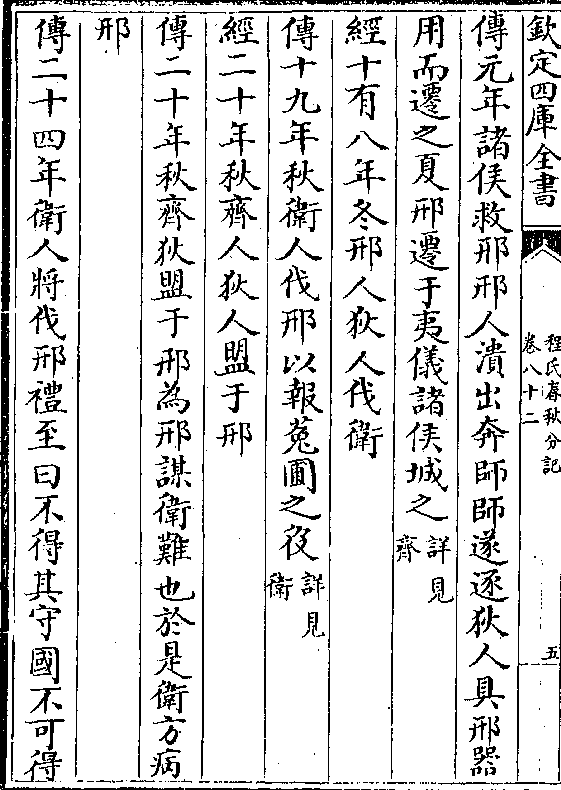 欽定四庫全書
程氏春秋分記
卷八十二
五
傳元年諸侯救邢邢人潰出奔師師遂逐狄人具邢器
用而遷之夏邢遷于夷儀諸侯城之詳見
齊
經十有八年冬邢人狄人伐衛
傳十九年秋衛人伐邢以報菟圃之役詳見
衛
經二十年秋齊人狄人盟于邢
傳二十年秋齊狄盟于邢為邢謀衛難也於是衛方病
邢
傳二十四年衛人將伐邢禮至曰不得其守國不可得